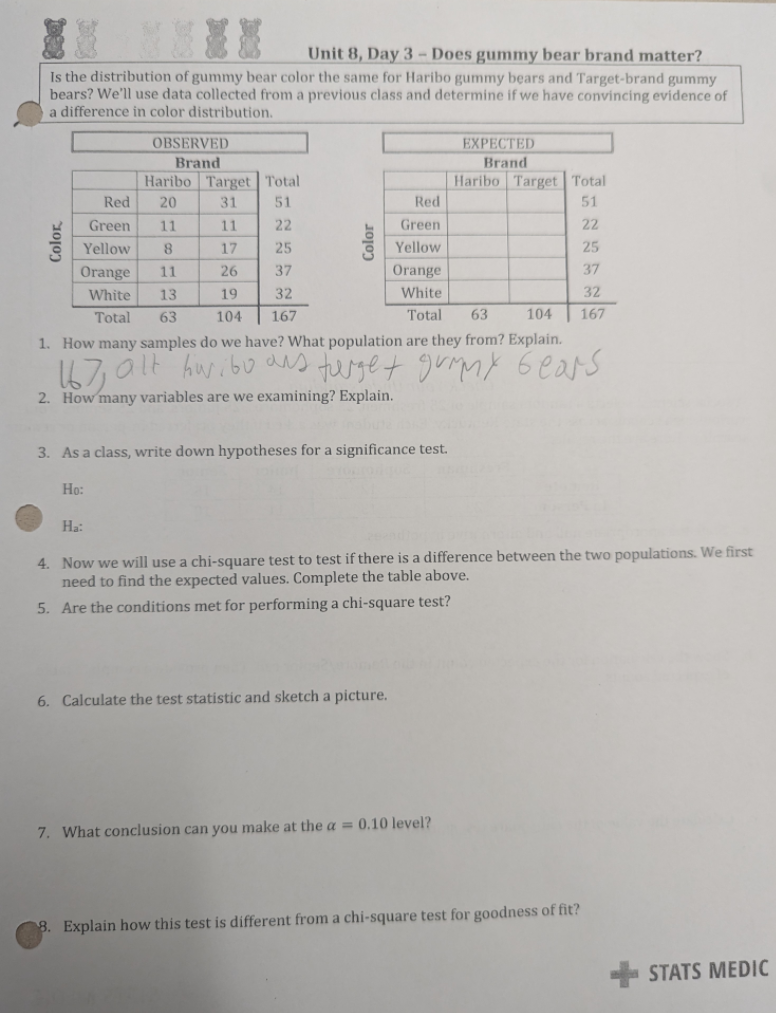 Unit 8, Day 3 – Does gummy bear brand matter?
Is the distribution of gummy bear color the same for Haribo gummy bears and Target-brand gummy
bears? We'll use data collected from a previous class and determine if we have convincing evidence of
a difference in color distribution.
OBSERVED
Brand
Haribo Target Total
Color
Red 20 31 51
Green 11 11 22
Yellow 8 17 25
Orange 11 26 37
White 13 19 32
Total 63 104 167
EXPECTED
Brand
Haribo Target Total
Color
Red 51
Green 22
Yellow 25
Orange 37
White 32
Total 63 104 167
1. How many samples do we have? What population are they from? Explain.
167, all haribo and target gummy bears
2. How many variables are we examining? Explain.
3. As a class, write down hypotheses for a significance test.
H₀:
Hₐ:
4. Now we will use a chi-square test to test if there is a difference between the two populations. We first
need to find the expected values. Complete the table above.
5. Are the conditions met for performing a chi-square test?
6. Calculate the test statistic and sketch a picture.
7. What conclusion can you make at the α = 0.10 level?
8. Explain how this test is different from a chi-square test for goodness of fit?
STATS MEDIC